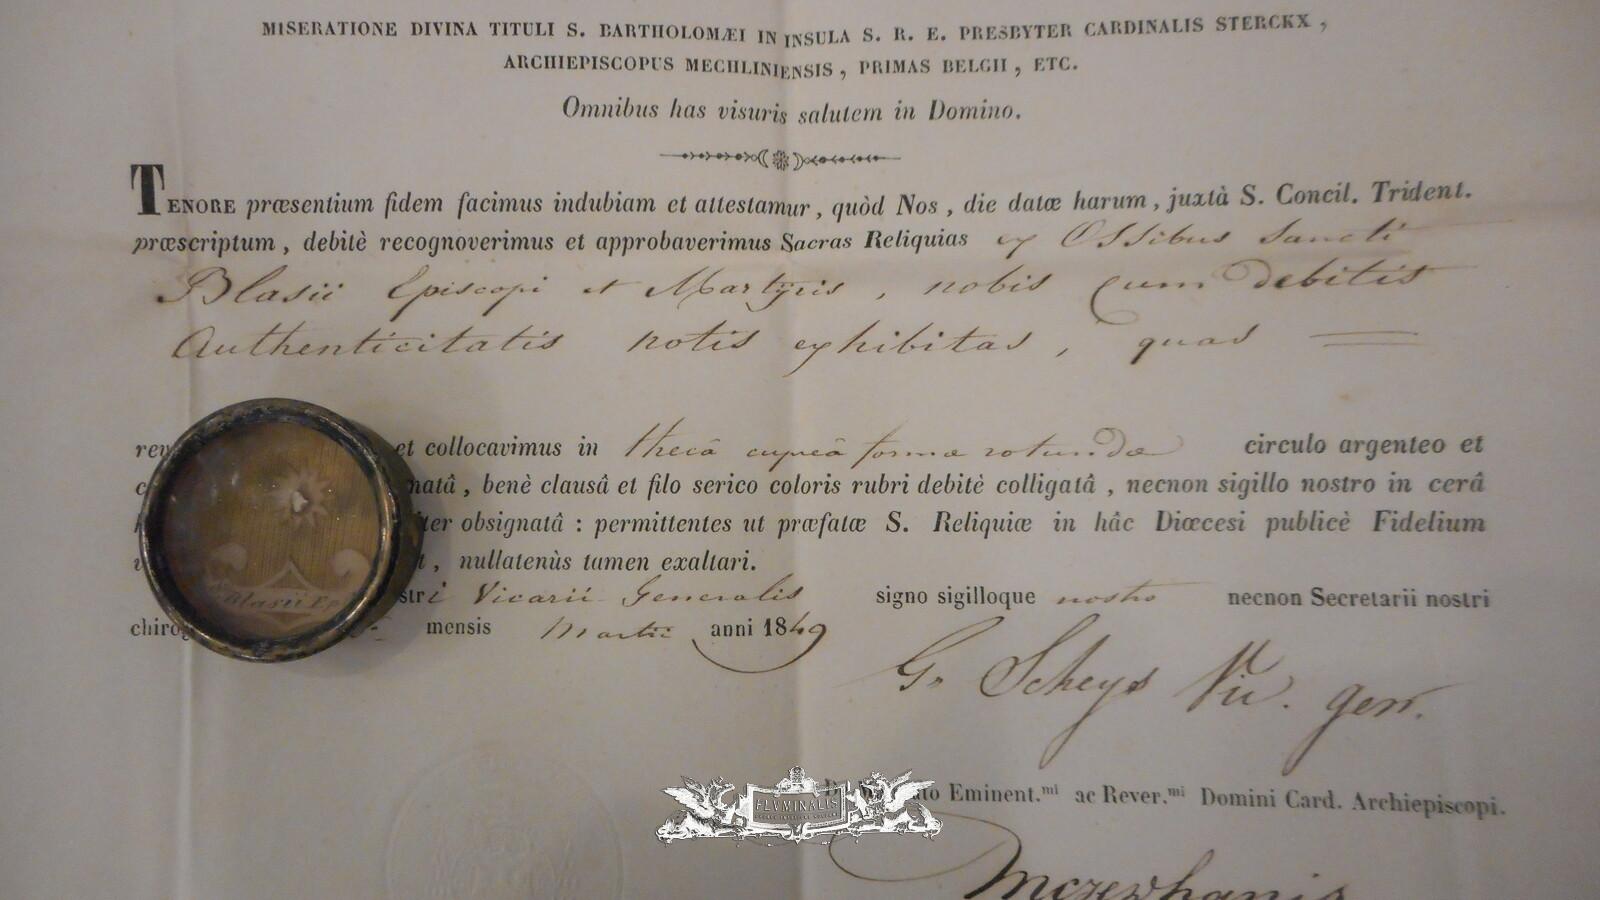 MISERATIONE DIVINA TITULI S. BARTHOLOMÆI IN INSULA S. R. E. PRESBYTER CARDINALIS STERCKX ,
ARCHIEPISCOPUS MECHLINIENSIS , PRIMAS BELGII , ETC.
Omnibus has visuris salutem in Domino.
TENORE præsentium fidem facimus indubiam et attestamur , quòd Nos , die datæ harum , juxtà S. Concil. Trident.
præscriptum , debitè recognoverimus et approbaverimus Sacras Reliquias ex Ossibus Sancti
Blasii Episcopi et Martyris , nobis cum debitis
Authenticitatis notis exhibitas , quas
et collocavimus in thecâ cupreâ formæ rotundæ circulo argenteo et
natâ , benè clausâ et filo serico coloris rubri debitè colligatâ , necnon sigillo nostro in cerâ
iter obsignatâ : permittentes ut præfatæ S. Reliquiæ in hâc Diœcesi publicè Fidelium
, nullatenùs tamen exaltari.
stri Vicarii Generalis signo sigilloque nostro necnon Secretarii nostri
chirog mensis Martii anni 1849
Blasii Ep
G. Scheys Vic. gen.
FLVMINALIS
Eminent.mi ac Rever.mi Domini Card. Archiepiscopi.